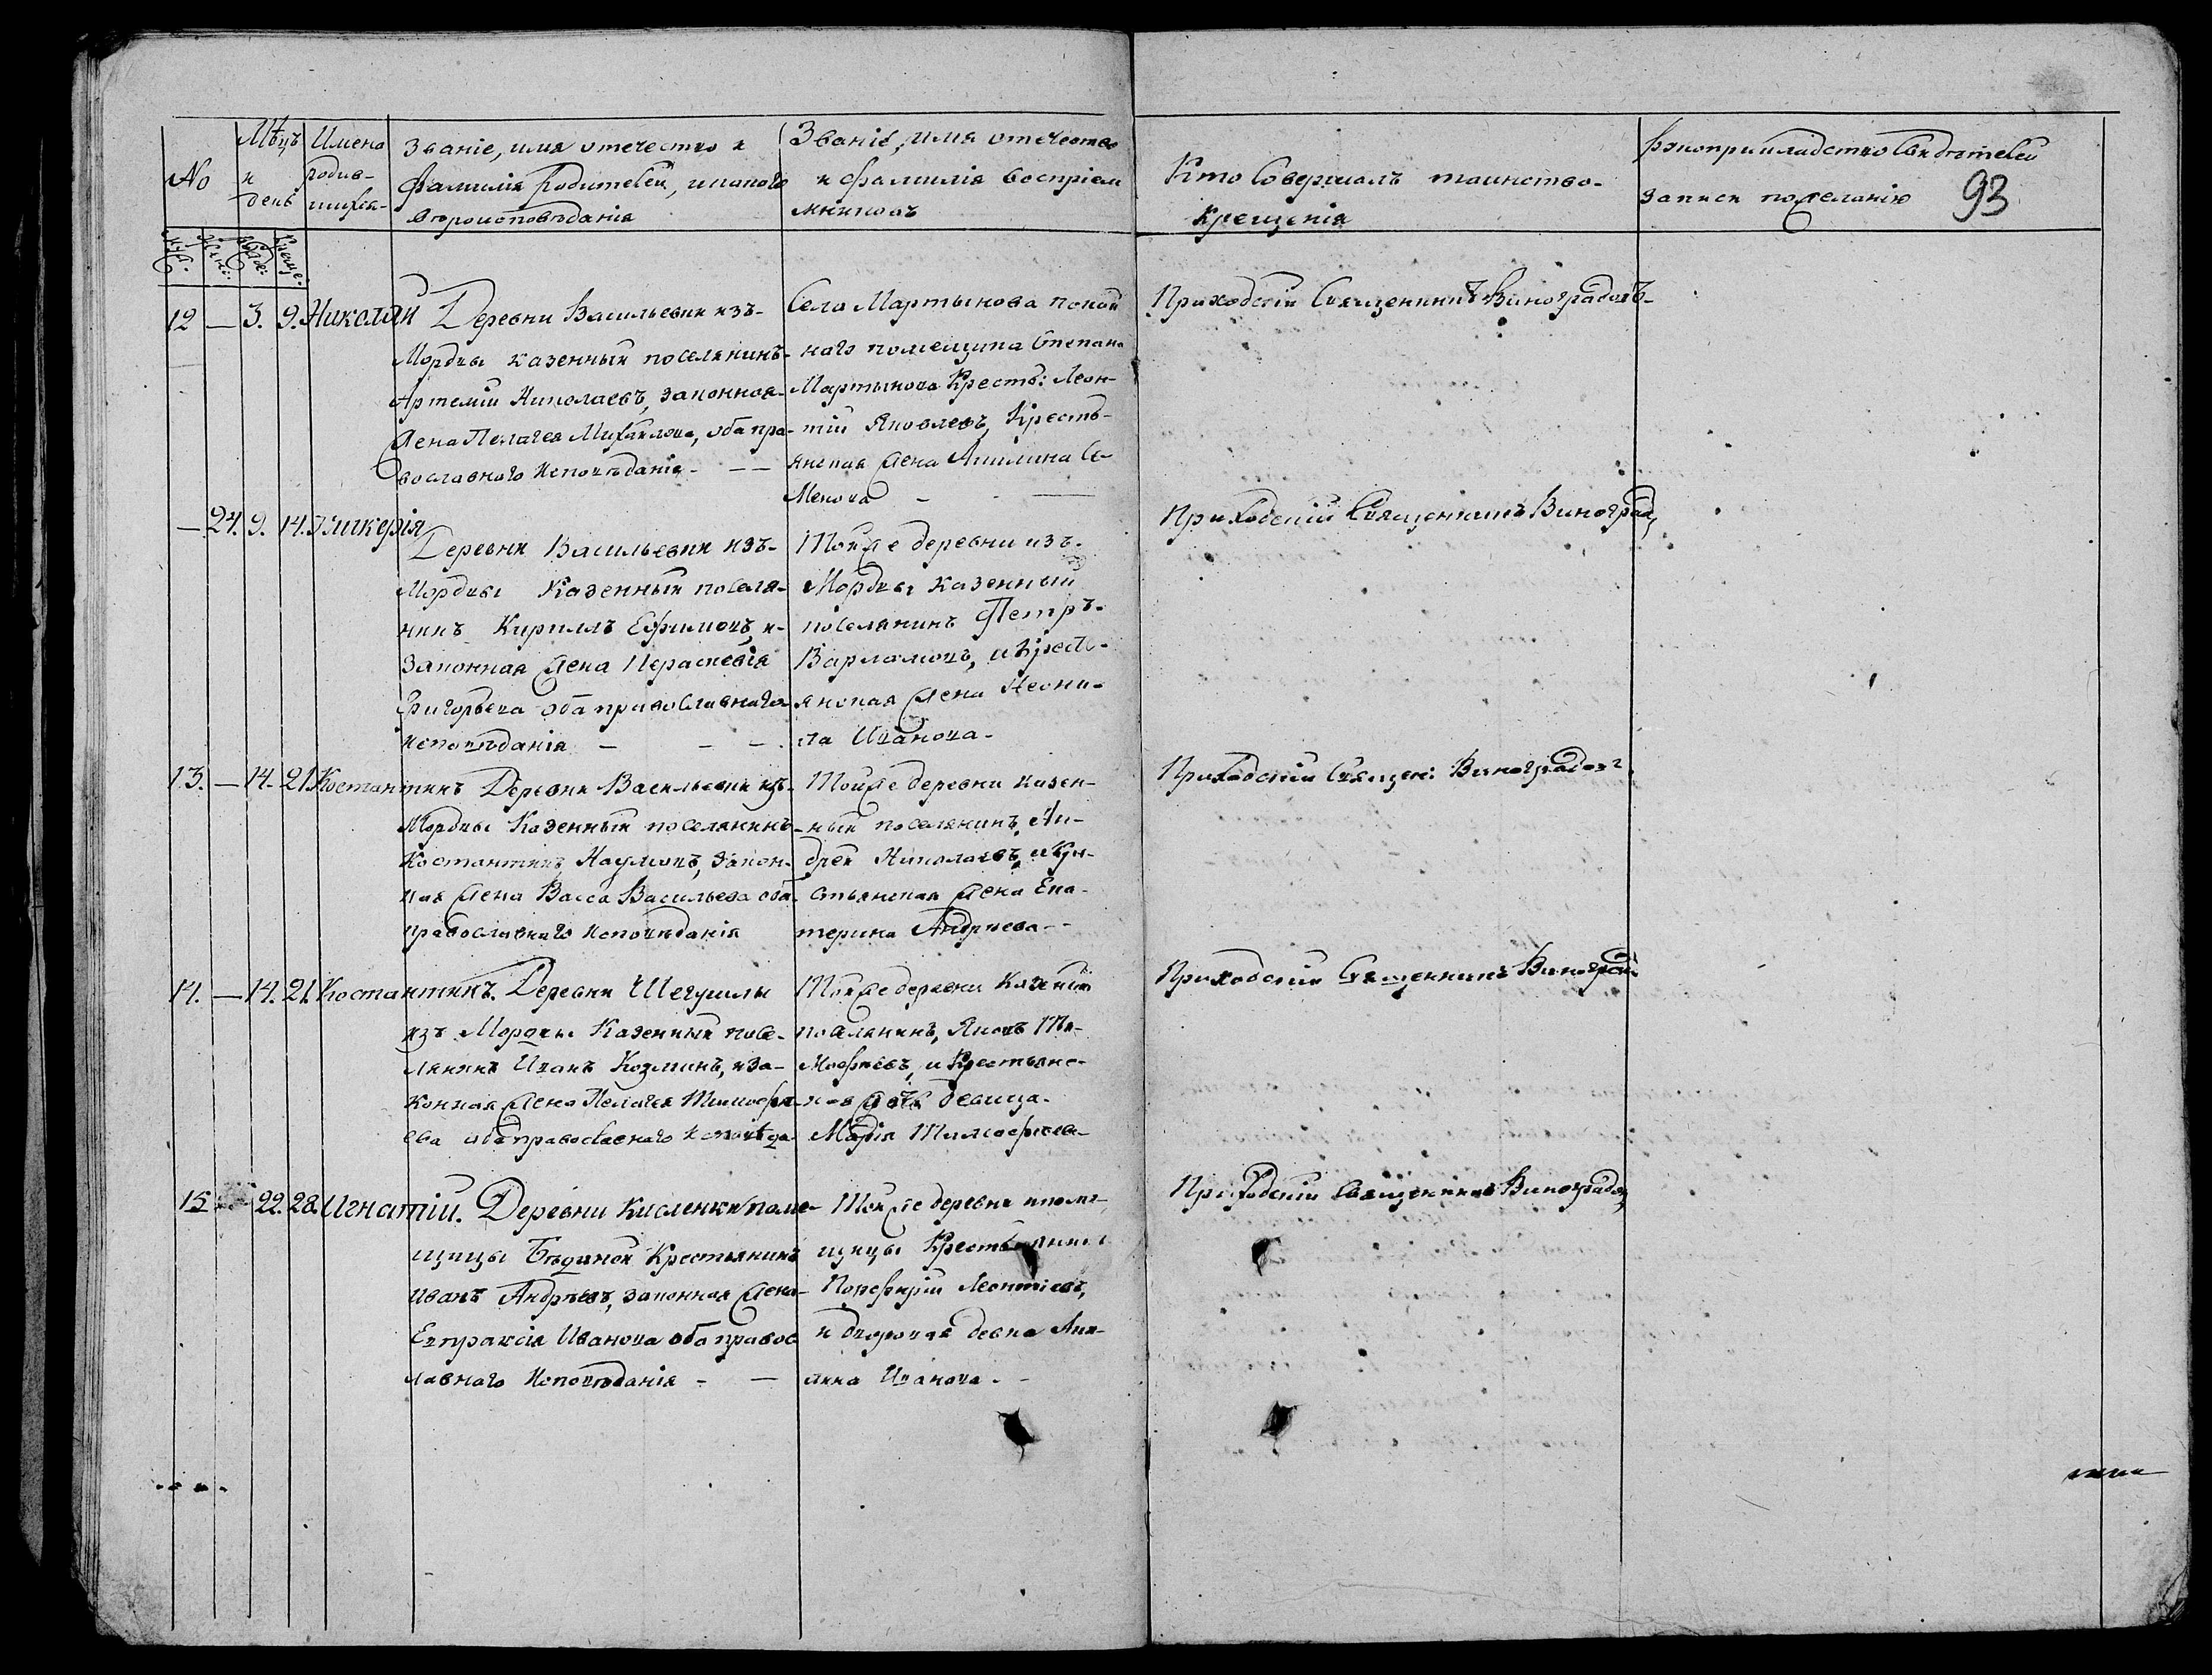 93
№
Мѣцъ и день
Имена родив-шихся-
Званіе, имя отечество и
фамилія Родителей, и какого
вѣроисповѣданія
Званіе, имя отечество
и фамилія воспріем
мниковъ
Кто Совершалъ таинство-
крещенія
записи по желанію
12 — 3. 9. Николай
Деревни Васильевки изъ-
Мордвы казенный поселянинъ-
Артемій Николаевъ, законная-
жена Пелагея Михайлова, оба пра-
вославного Исповѣданія- — —
Села Мартынова покой
ного помещика Степана
Мартынова Кресть: Леон-
тій Яковлевъ, Кресть-
янская жена Акилина Се-
менова - - —
Приходскій Священникъ Виноградовъ-
— 24. 9. 14. Гликерія
Деревни Васильевки изъ-
Мордвы Казенный поселя-
нинъ Кириллъ Ефимовъ, и-
законная жена Параскевія
Григорьева оба православнаго-
исповѣданія — — —.
Той же деревни изъ-
Мордвы казенный
поселянинъ Петръ-
Варламовъ, и Кресть-
янская жена Неони-
ла Иванова-
Приходскій Священникъ Виноград,
13. — 14. 21. Костантинъ
Деревни Васильевки изъ-
Мордвы Казенный поселянинъ-
Костантинъ Наумовъ, закон-
ная жена Васса Васильева оба
православнаго исповѣданія
Той же деревни казен-
ный поселянинъ, Ан-
дрей Николаевъ, и Кре-
стьянская жена Ека-
терина Андрѣева--
Приходскій Священ: Виноградовъ.
14. — 14. 21. Костантинъ.
Деревни Шегушлы
изъ Мордвы Казенный посе-
лянинъ Иванъ Козминъ, и за-
конная жена Пелагея Тимофѣ-
ева оба православнаго исповѣда-
Той же деревни Казеный
поселянинъ, Яковъ Ти-
мофѣевъ, и Крестьянс-
кая дочь девица-
Марія Тимофѣева-
Приходскій Священникъ Виноград:
15 22. 28. Игнатій.
Деревни Кисленки поме-
щицы Бѣдиной Крестьянинъ
Иванъ Андрѣевъ, законная жена-
Евпраксія Иванова оба правос
лавнаго Исповѣданія - —
Той же деревни и поме-
щицы Крестьянинъ
Порфирій Леонтіевъ,
и дворовая девка
Иванова. -
Приходскій Священникъ Виноградов,